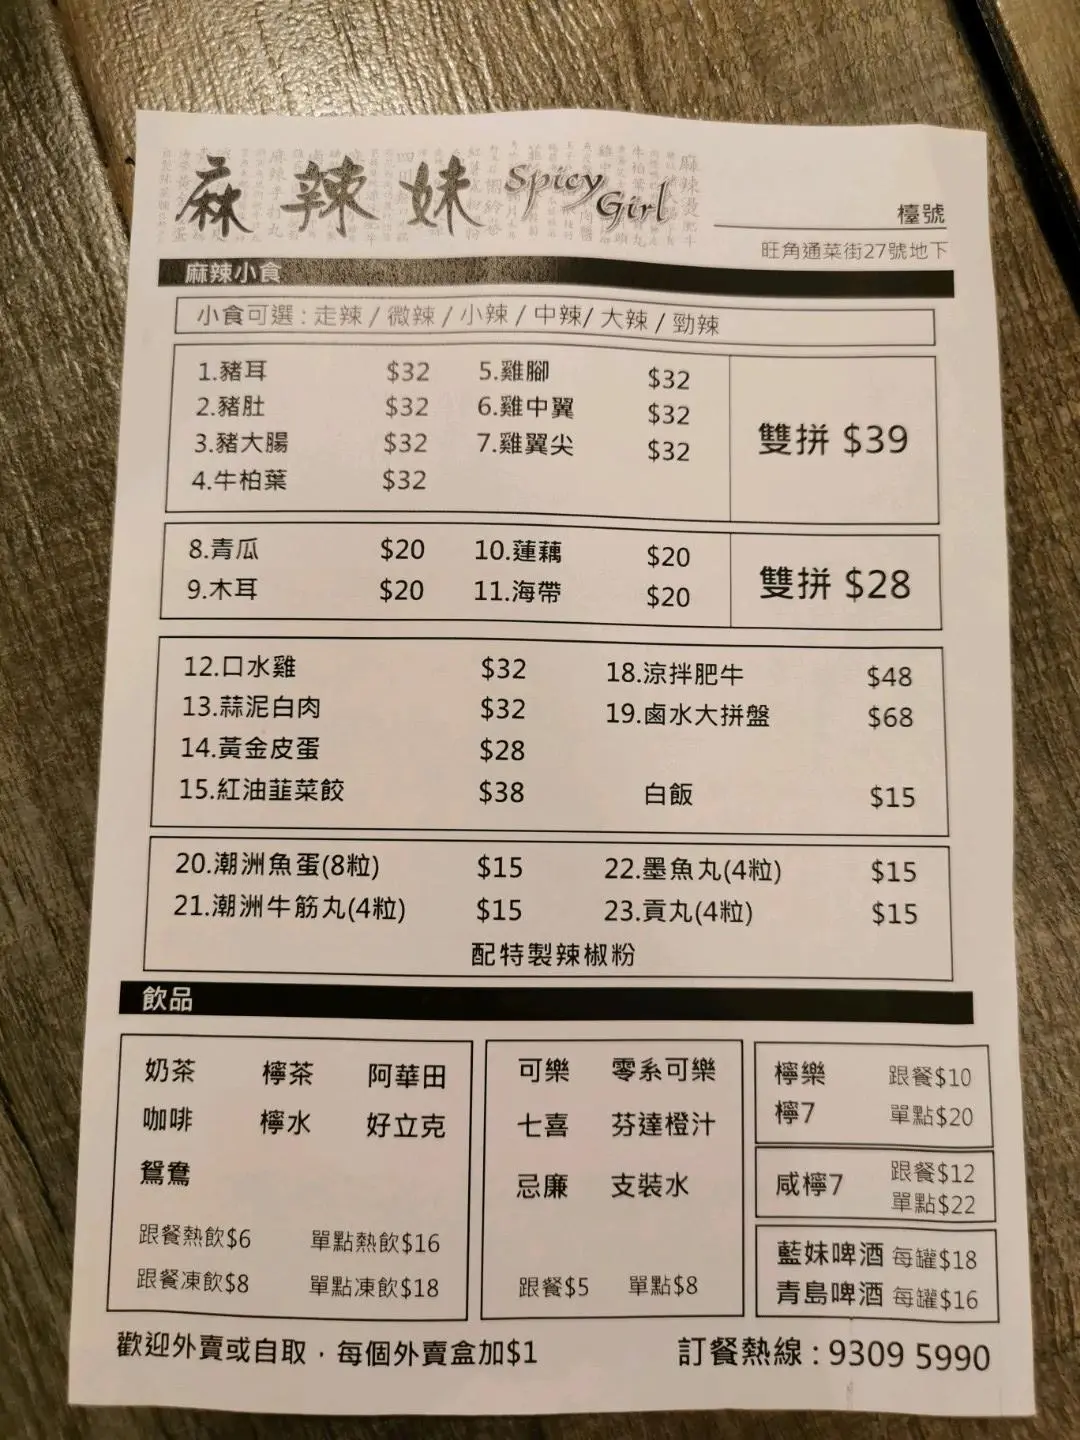 麻辣妹 Spicy Girl
檯號
旺角通菜街27號地下
麻辣小食
小食可選 : 走辣 / 微辣 / 小辣 / 中辣/ 大辣 / 勁辣
1.豬耳 $32 5.雞腳 $32
2.豬肚 $32 6.雞中翼 $32
3.豬大腸 $32 7.雞翼尖 $32
4.牛柏葉 $32
雙拼 $39
8.青瓜 $20 10.蓮藕 $20
9.木耳 $20 11.海帶 $20
雙拼 $28
12.口水雞 $32 18.涼拌肥牛 $48
13.蒜泥白肉 $32 19.鹵水大拼盤 $68
14.黃金皮蛋 $28
15.紅油韮菜餃 $38 白飯 $15
20.潮洲魚蛋(8粒) $15 22.墨魚丸(4粒) $15
21.潮洲牛筋丸(4粒) $15 23.貢丸(4粒) $15
配特製辣椒粉
飲品
奶茶 檸茶 阿華田
咖啡 檸水 好立克
鴛鴦
跟餐熱飲$6 單點熱飲$16
跟餐凍飲$8 單點凍飲$18
可樂 零系可樂
七喜 芬達橙汁
忌廉 支裝水
跟餐$5 單點$8
檸樂 跟餐$10
檸7 單點$20
咸檸7 跟餐$12
單點$22
藍妹啤酒 每罐$18
青島啤酒 每罐$16
歡迎外賣或自取，每個外賣盒加$1
訂餐熱線 : 9309 5990